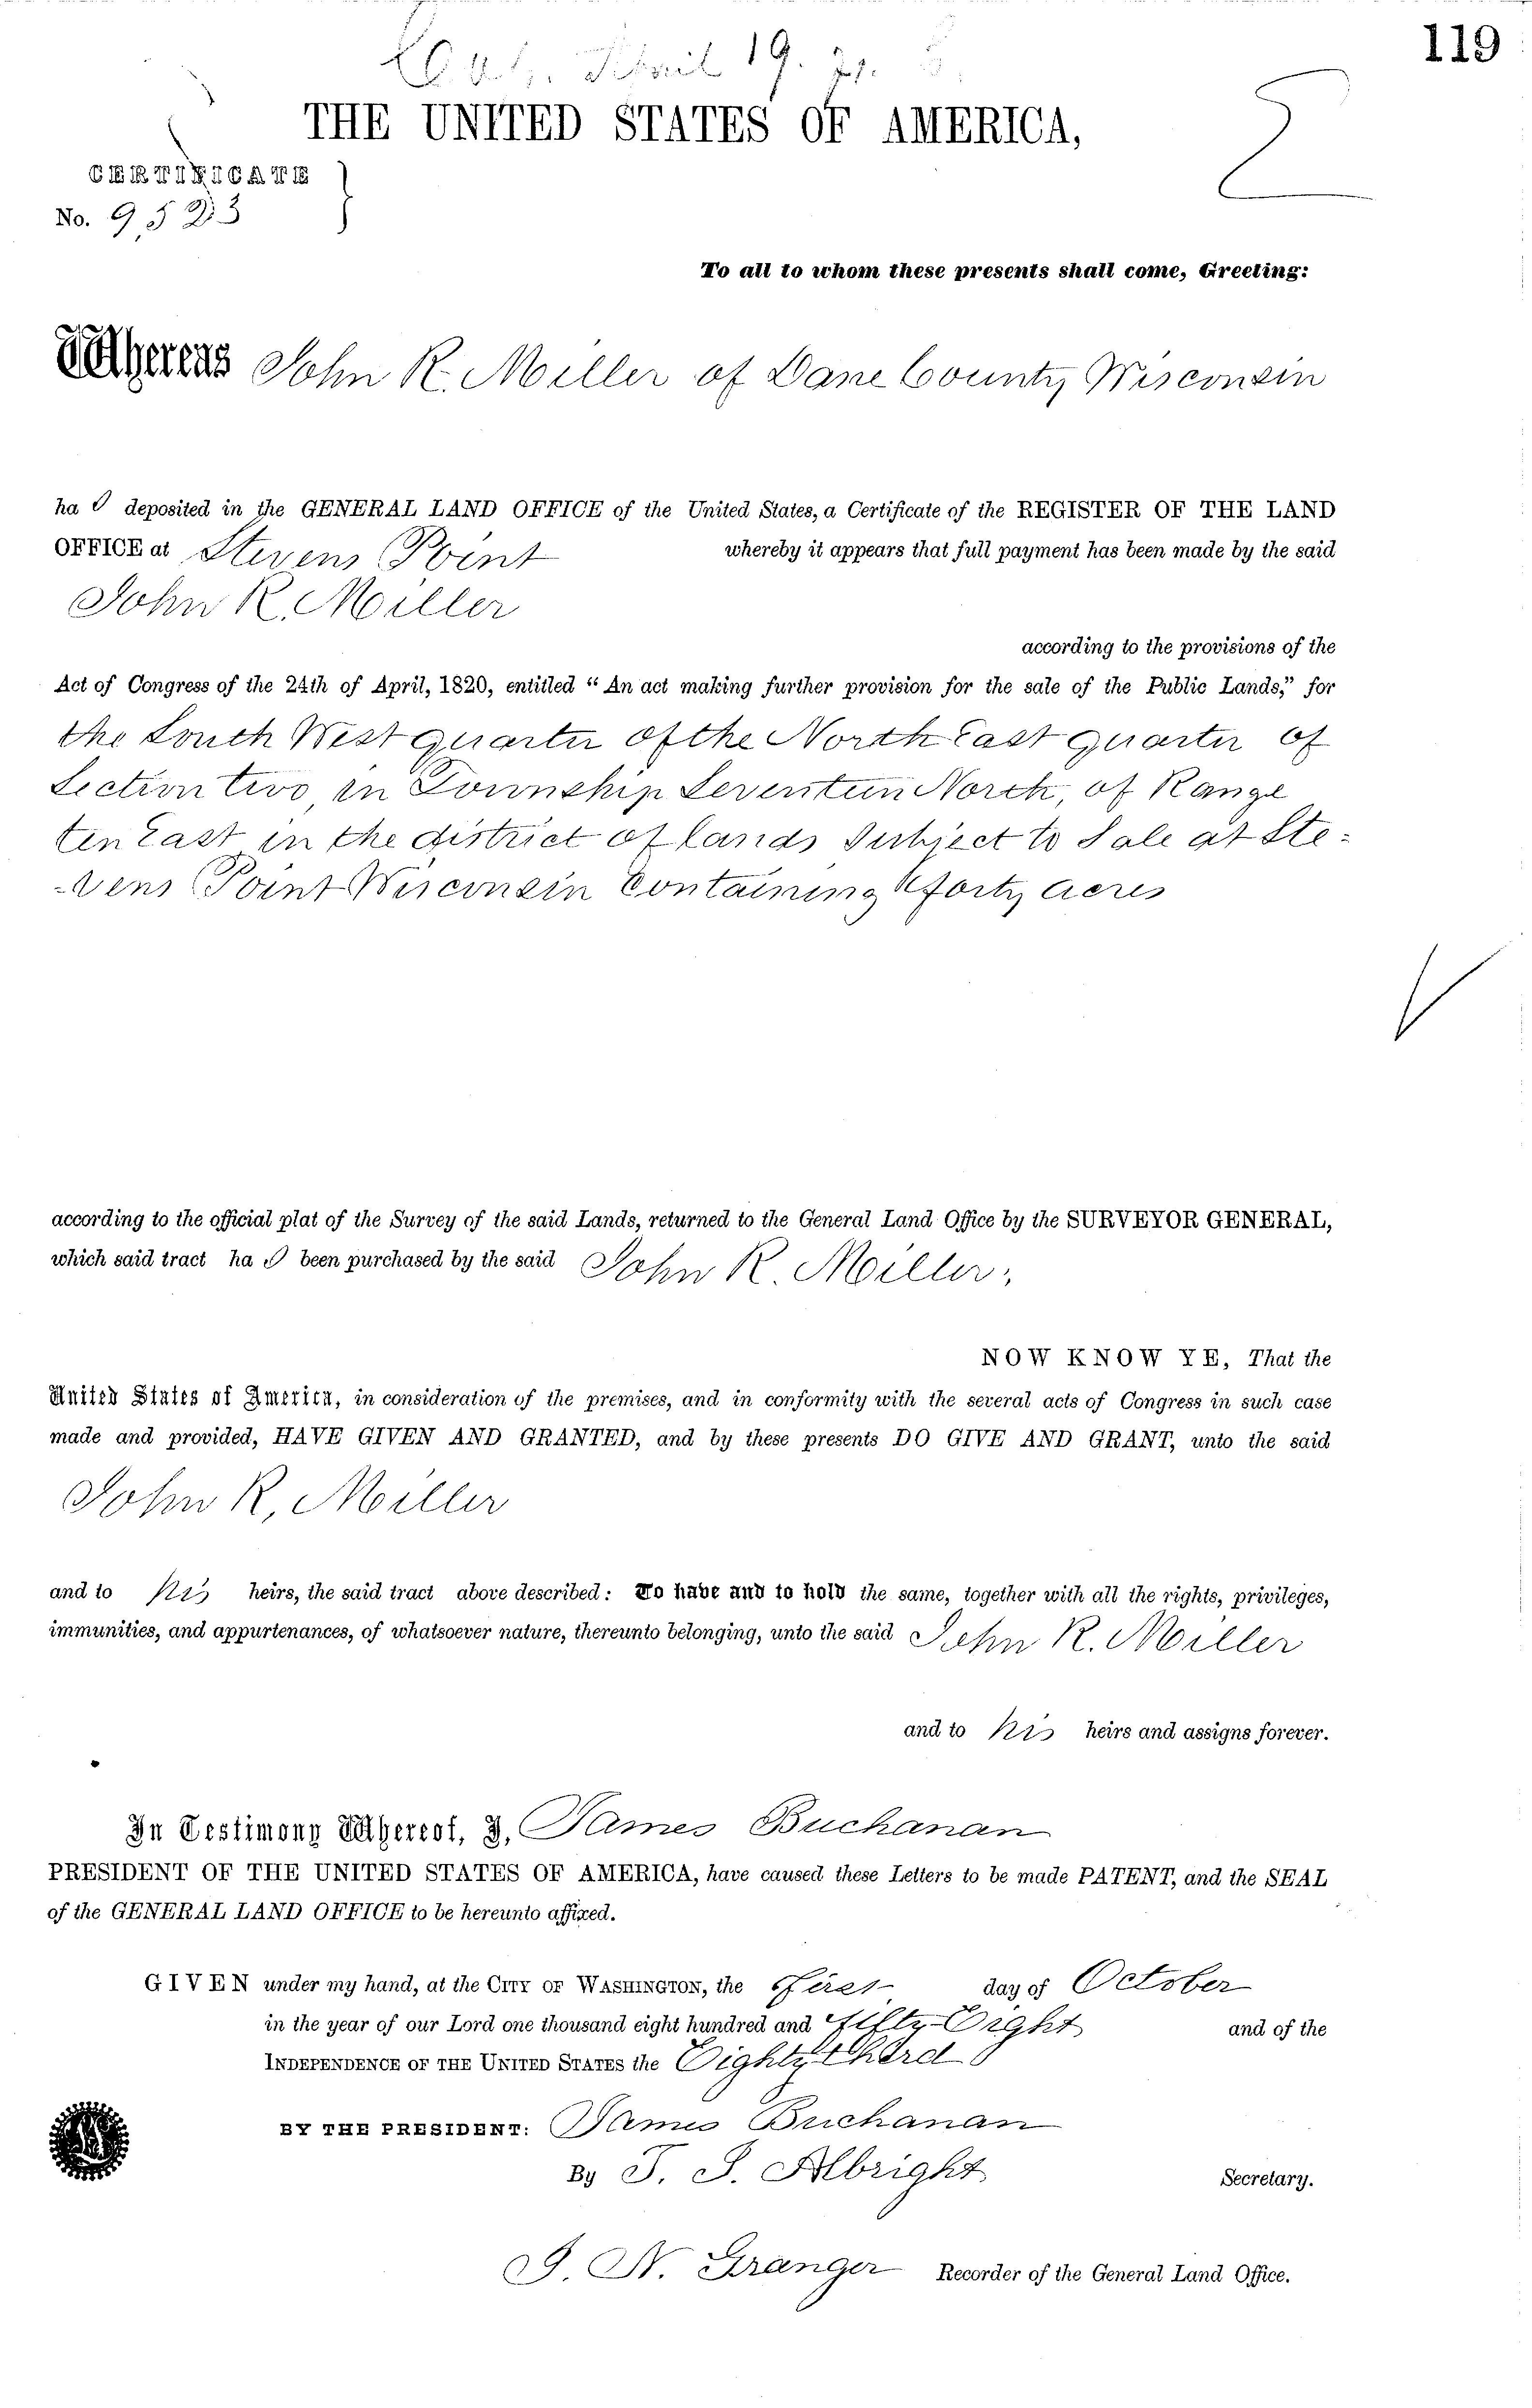 119
April 19.
THE UNITED STATES OF AMERICA,
CERTIFICATE
No. 9523
To all to whom these presents shall come, Greeting:
Whereas John R. Miller of Dane County Wisconsin
ha s deposited in the GENERAL LAND OFFICE of the United States, a Certificate of the REGISTER OF THE LAND
OFFICE at Stevens Point whereby it appears that full payment has been made by the said
John R. Miller
according to the provisions of the
Act of Congress of the 24th of April, 1820, entitled “An act making further provision for the sale of the Public Lands,” for
the South West quarter of the North East quarter of
Section two in Township Seventeen North, of Range
ten East in the district of lands Subject to Sale at Ste-
-vens Point Wisconsin Containing forty acres
according to the official plat of the Survey of the said Lands, returned to the General Land Office by the SURVEYOR GENERAL,
which said tract ha s been purchased by the said John R. Miller,
NOW KNOW YE, That the
United States of America, in consideration of the premises, and in conformity with the several acts of Congress in such case
made and provided, HAVE GIVEN AND GRANTED, and by these presents DO GIVE AND GRANT, unto the said
John R, Miller
and to his heirs, the said tract above described: To have and to hold the same, together with all the rights, privileges,
immunities, and appurtenances, of whatsoever nature, thereunto belonging, unto the said John R. Miller
and to his heirs and assigns forever.
In Testimony Whereof, I, James Buchanan
PRESIDENT OF THE UNITED STATES OF AMERICA, have caused these Letters to be made PATENT, and the SEAL
of the GENERAL LAND OFFICE to be hereunto affixed.
GIVEN under my hand, at the CITY OF WASHINGTON, the first day of October
in the year of our Lord one thousand eight hundred and fifty-Eight and of the
INDEPENDENCE OF THE UNITED STATES the Eighty third
BY THE PRESIDENT: James Buchanan
By T. J. Albright Secretary.
J. N. Granger Recorder of the General Land Office.